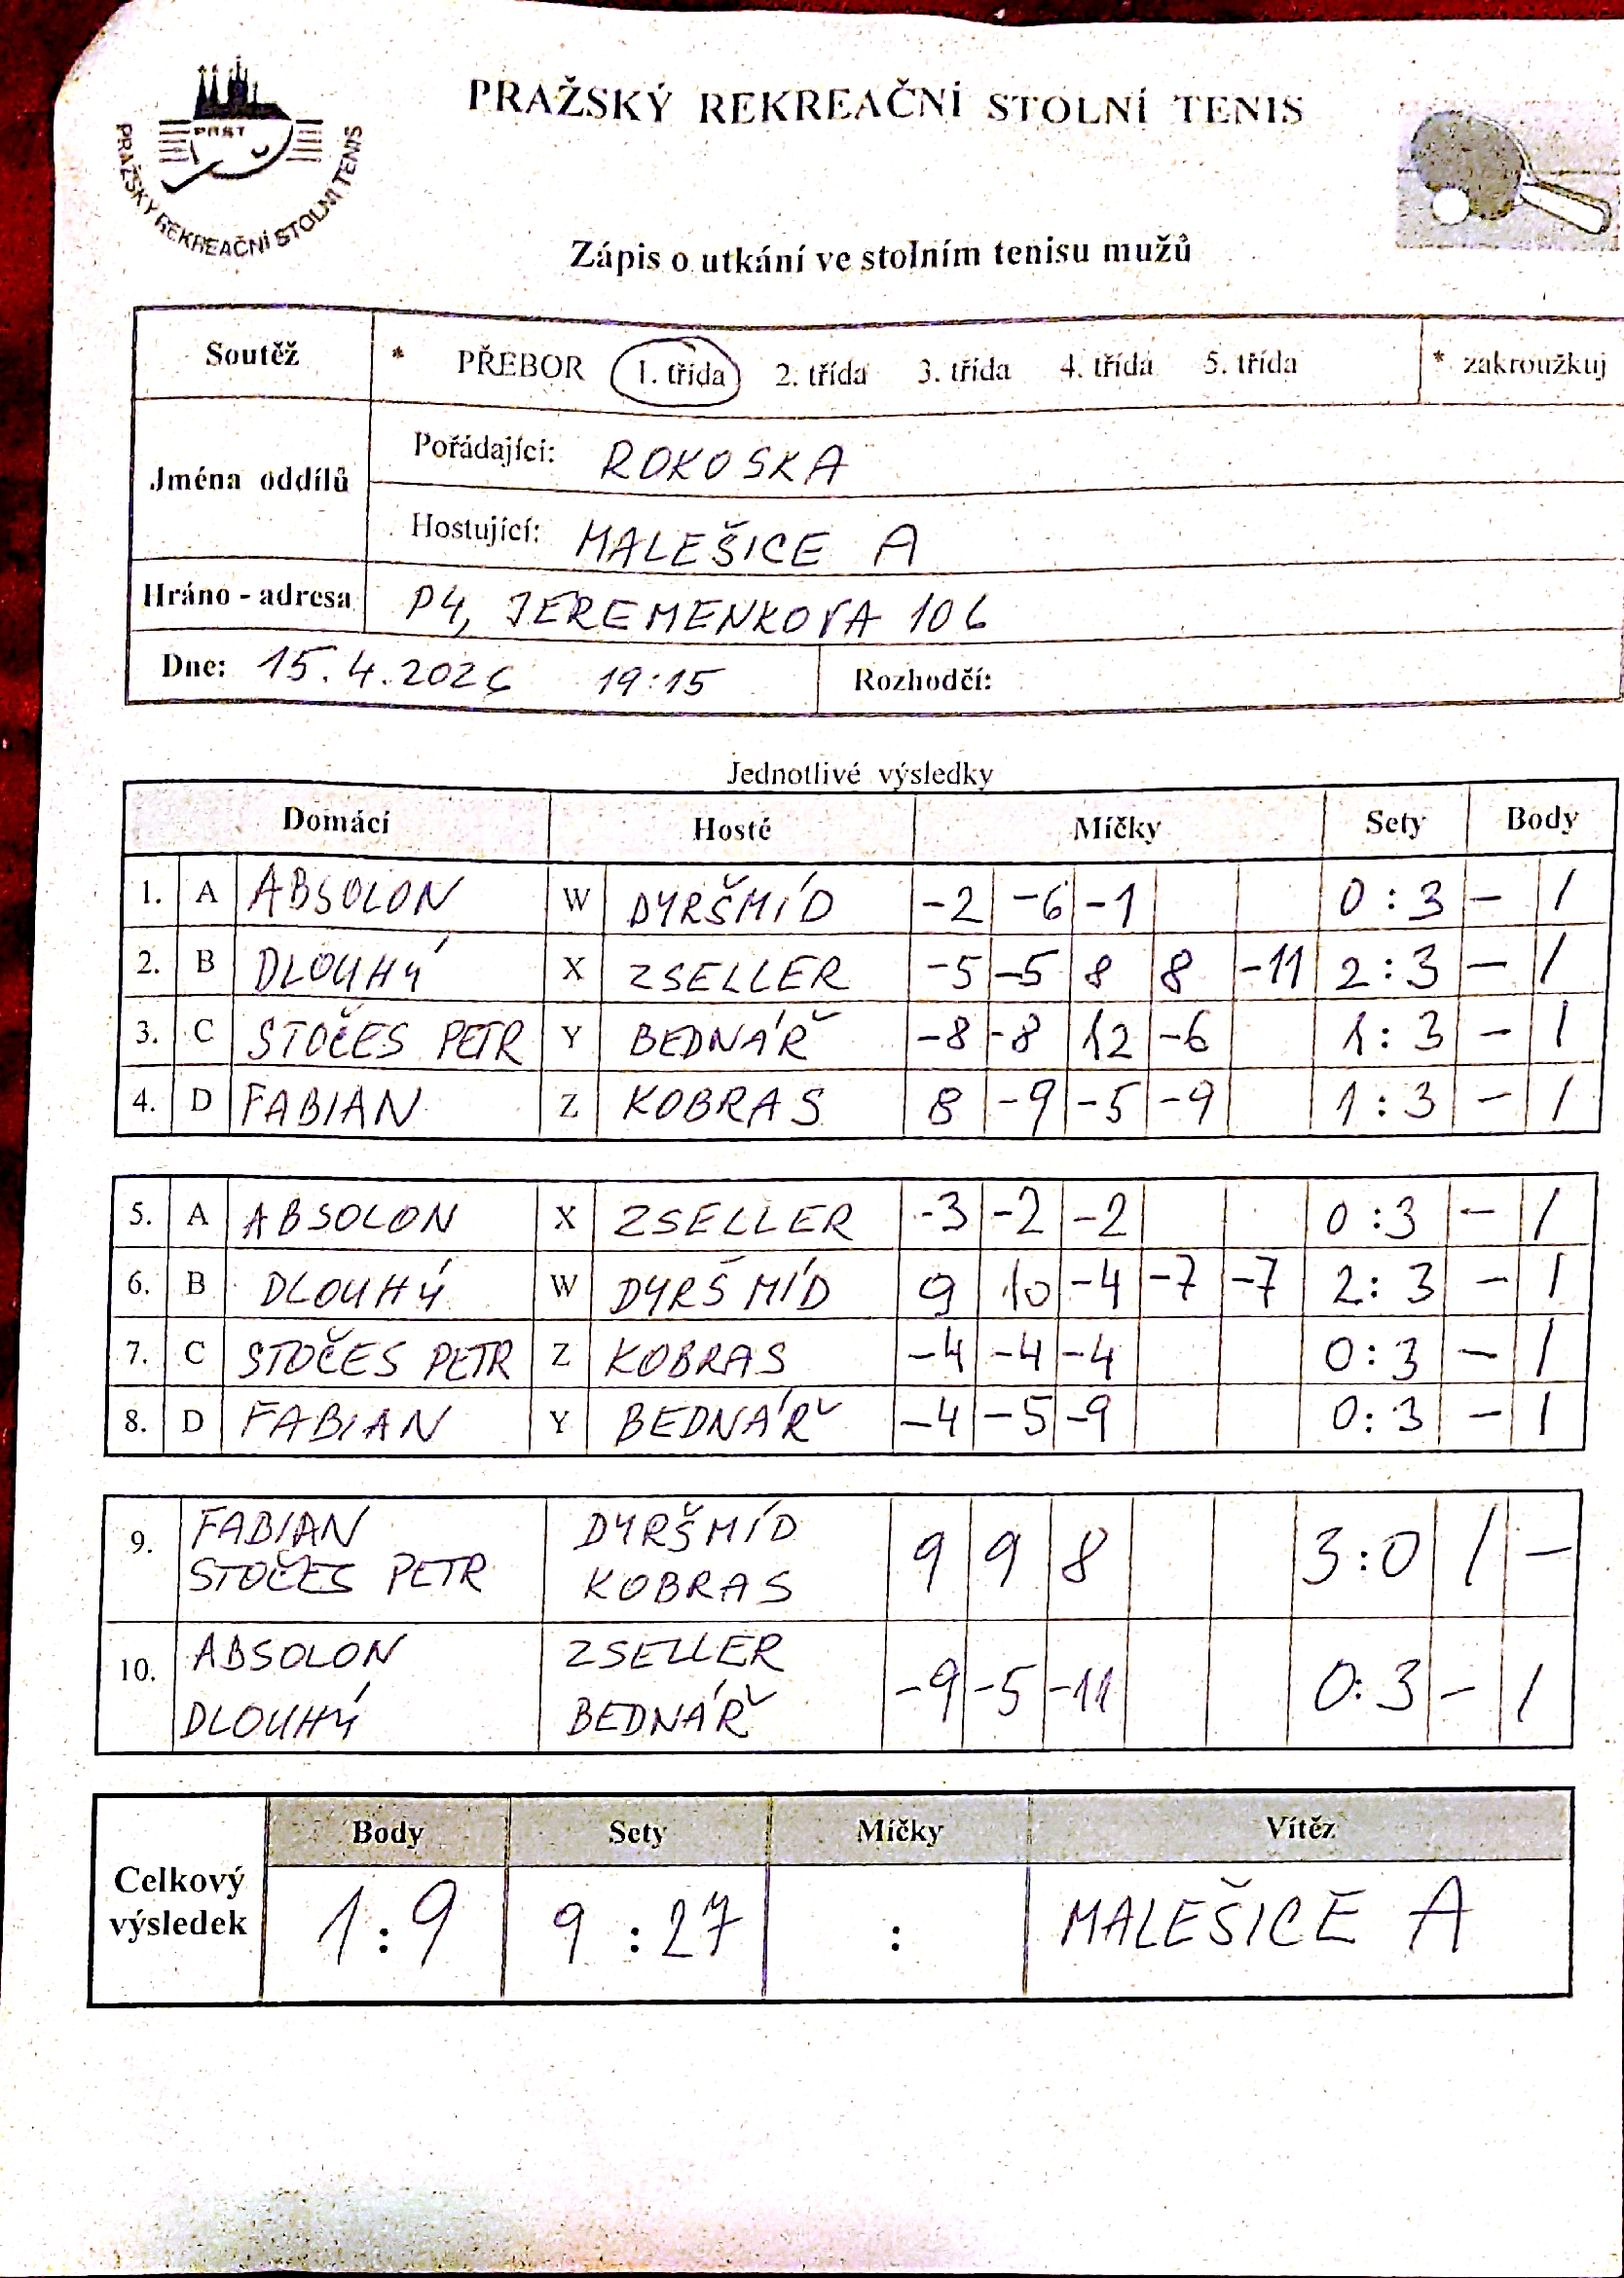 PRAŽSKÝ REKREAČNÍ STOLNÍ TENIS
PRST
PRAŽSKÝ REKREAČNÍ STOLNÍ TENIS
Zápis o utkání ve stolním tenisu mužů
Soutěž * PŘEBOR 1. třída 2. třída 3. třída 4. třída 5. třída * zakroužkuj
Jména oddílů
Pořádající: ROKOSKA
Hostující: MALEŠICE A
Hráno - adresa P4, JEREMENKOVA 106
Dne: 15.4.2026 19:15 Rozhodčí:
Jednotlivé výsledky
Domácí Hosté Míčky Sety Body
1. A ABSOLON W DYRŠMÍD -2 -6 -1 0:3 - 1
2. B DLOUHÝ X ZSELLER -5 -5 8 8 -11 2:3 - 1
3. C STOČES PETR Y BEDNÁŘ -8 -8 12 -6 1:3 - 1
4. D FABIAN Z KOBRAS 8 -9 -5 -9 1:3 - 1
5. A ABSOLON X ZSELLER -3 -2 -2 0:3 - 1
6. B DLOUHÝ W DYRŠMÍD 9 10 -4 -7 -7 2:3 - 1
7. C STOČES PETR Z KOBRAS -4 -4 -4 0:3 - 1
8. D FABIAN Y BEDNÁŘ -4 -5 -9 0:3 - 1
9. FABIAN DYRŠMÍD 9 9 8 3:0 1 -
STOČES PETR KOBRAS
10. ABSOLON ZSELLER -9 -5 -11 0:3 - 1
DLOUHÝ BEDNÁŘ
Body Sety Míčky Vítěz
Celkový výsledek 1:9 9:27 : MALEŠICE A